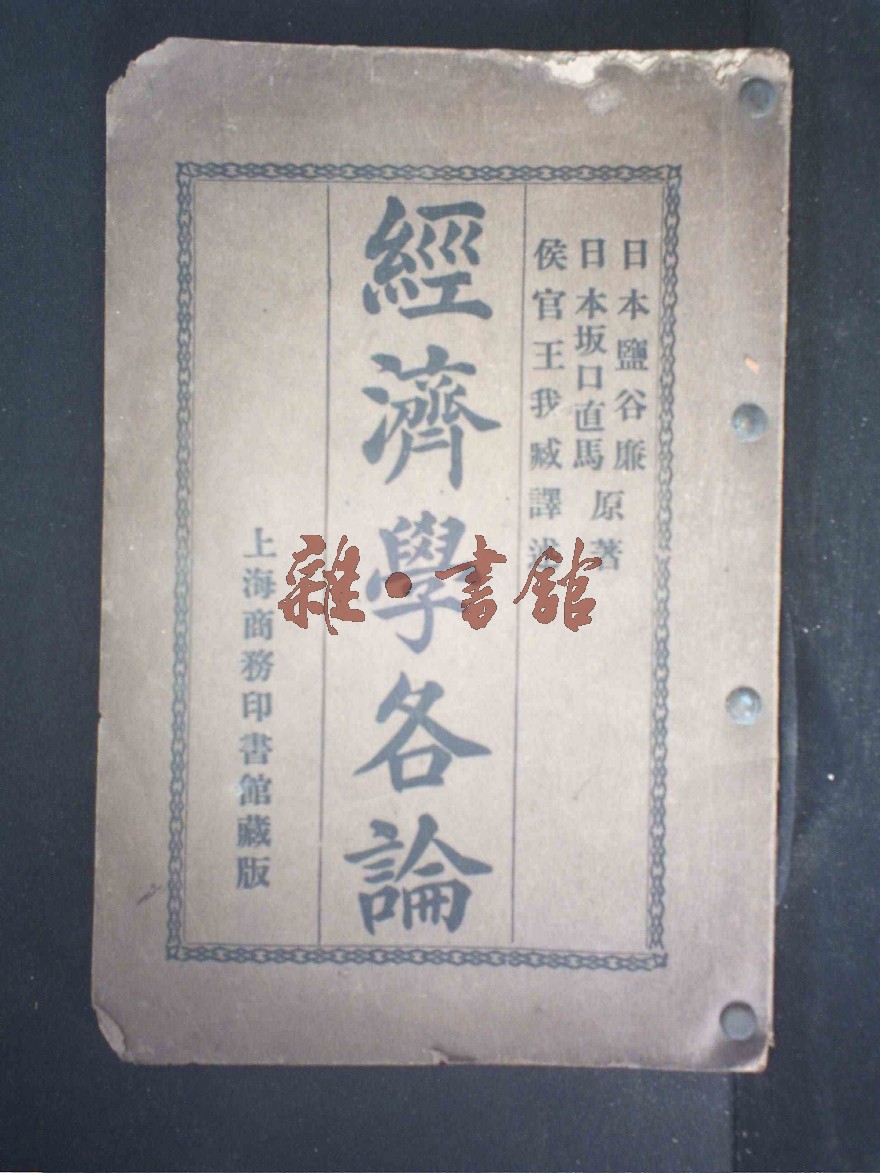 日本鹽谷廉
日本坂口直馬
原著
侯官王我臧譯述
經濟學各論
上海商務印書館藏版
雜·書館